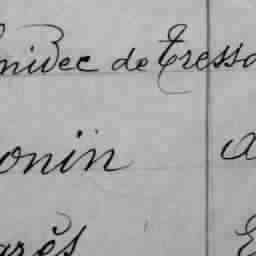 nivec de Tresso
onin a
arês E